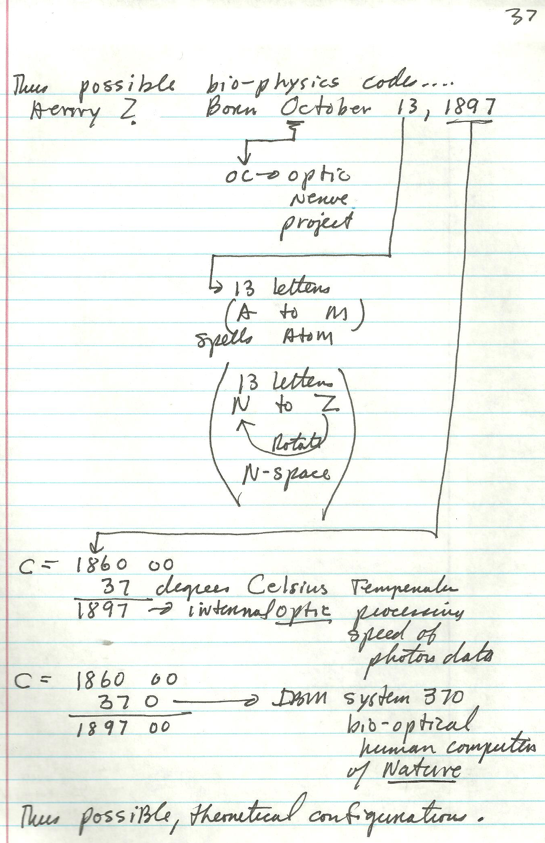 37
Thus possible bio-physics codes....
Henry Z. Born October 13, 1897
OC→ optic
Nerve
project
13 letters
(A to M)
spells Atom
13 letters
N to Z
Rotate
N-space
C = 1860 00
37 degrees Celsius Temperature
1897 → internal optic processing
speed of
photon data
C = 1860 00
37 0 → IBM system 370
1897 00 bio-optical
human computer
of Nature
Thus possible, theoretical configurations.